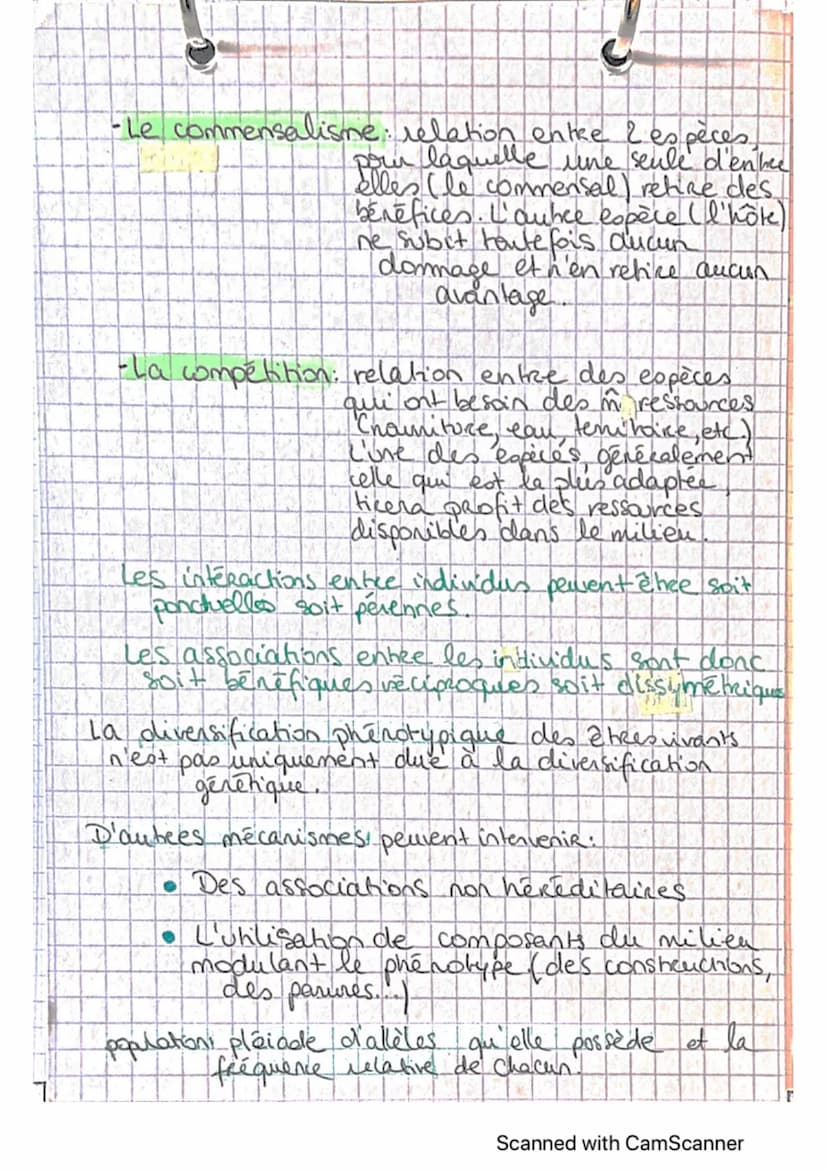 -Le commensalisme: relation entre 2 espèces,
pour laquelle une seule d'entre
elles (le commensal) retire des
bénéfices. L'autre espèce (l'hôte)
ne subit toutefois aucun
dommage et n'en retire aucun
avantage.
-La compétition: relation entre des espèces
qui ont besoin des m̂ ressources
(nourriture, eau, territoire, etc.)
L'une des espèces, généralement
celle qui est la plus adaptée,
tirera profit des ressources
disponibles dans le milieu.
Les intéractions entre individus peuvent être soit
ponctuelles soit pérennes.
Les associations entre les individus sont donc
soit bénéfiques réciproques soit dissymétrique
La diversification phénotypique des êtres vivants
n'est pas uniquement due à la diversification
génétique.
D'autres mécanismes peuvent intervenir:
• Des associations non héréditaires
• L'utilisation de composants du milieu
modulant le phénotype (des constructions,
des parures...)
population: pléiade d'allèles qu'elle possède et la
fréquence relative de chacun.
Scanned with CamScanner